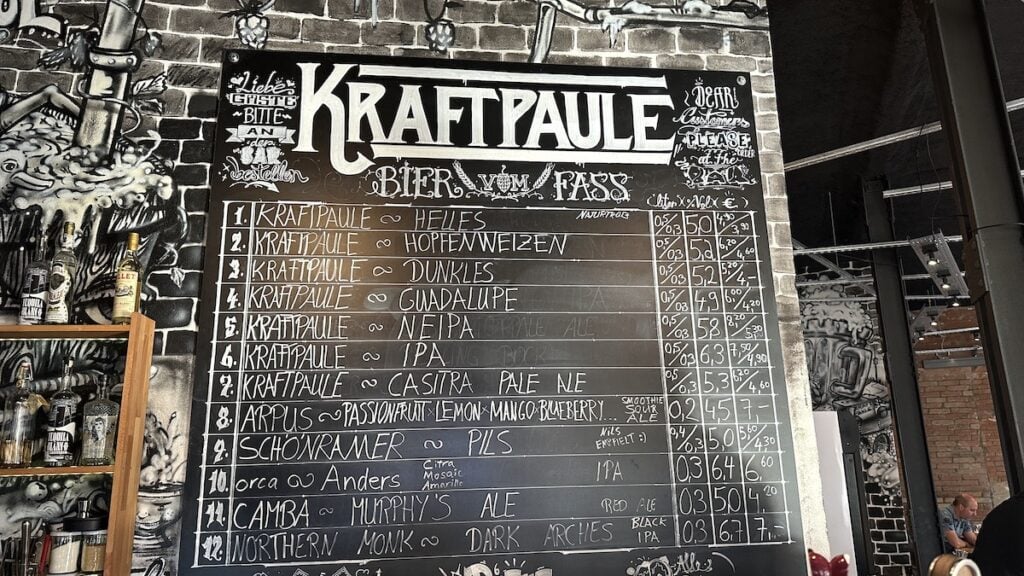 Liebe
Gäste
BITTE
AN
der
BAR
bestellen
KRAFTPAULE
DEAR
Customers
PLEASE
at the
BIER VOM FASS
1. KRAFTPAULE ~ HELLES NATURTRÜB 0,5/0,3 5,0
2. KRAFTPAULE ~ HOPFENWEIZEN 0,5/0,3
3. KRAFTPAULE ~ DUNKLES 0,5/0,3 5,2
4. KRAFTPAULE ~ GUADALUPE 0,5/0,3 4,9
5. KRAFTPAULE ~ NEIPA 0,5/0,3 5,8
6. KRAFTPAULE ~ IPA 0,5/0,3 6,3
7. KRAFTPAULE ~ CASITRA PALE ALE 0,5/0,3 5,3
8. ARPUS ~ PASSIONFRUIT × LEMON × MANGO × BLUEBERRY... SMOOTHIE SOUR ALE 0,2 4,5 7.-
9. SCHÖNRAMER ~ PILS Nils EMPFIEHLT :) 5,0
10. orca ~ Anders Citra Mosaic Amarillo IPA 0,3 6,4 6,60
11. CAMBA ~ MURPHY'S ALE RED ALE 0,3 5,0 4,20
12. NORTHERN MONK ~ DARK ARCHES BLACK IPA 0,3 6,7 7.-